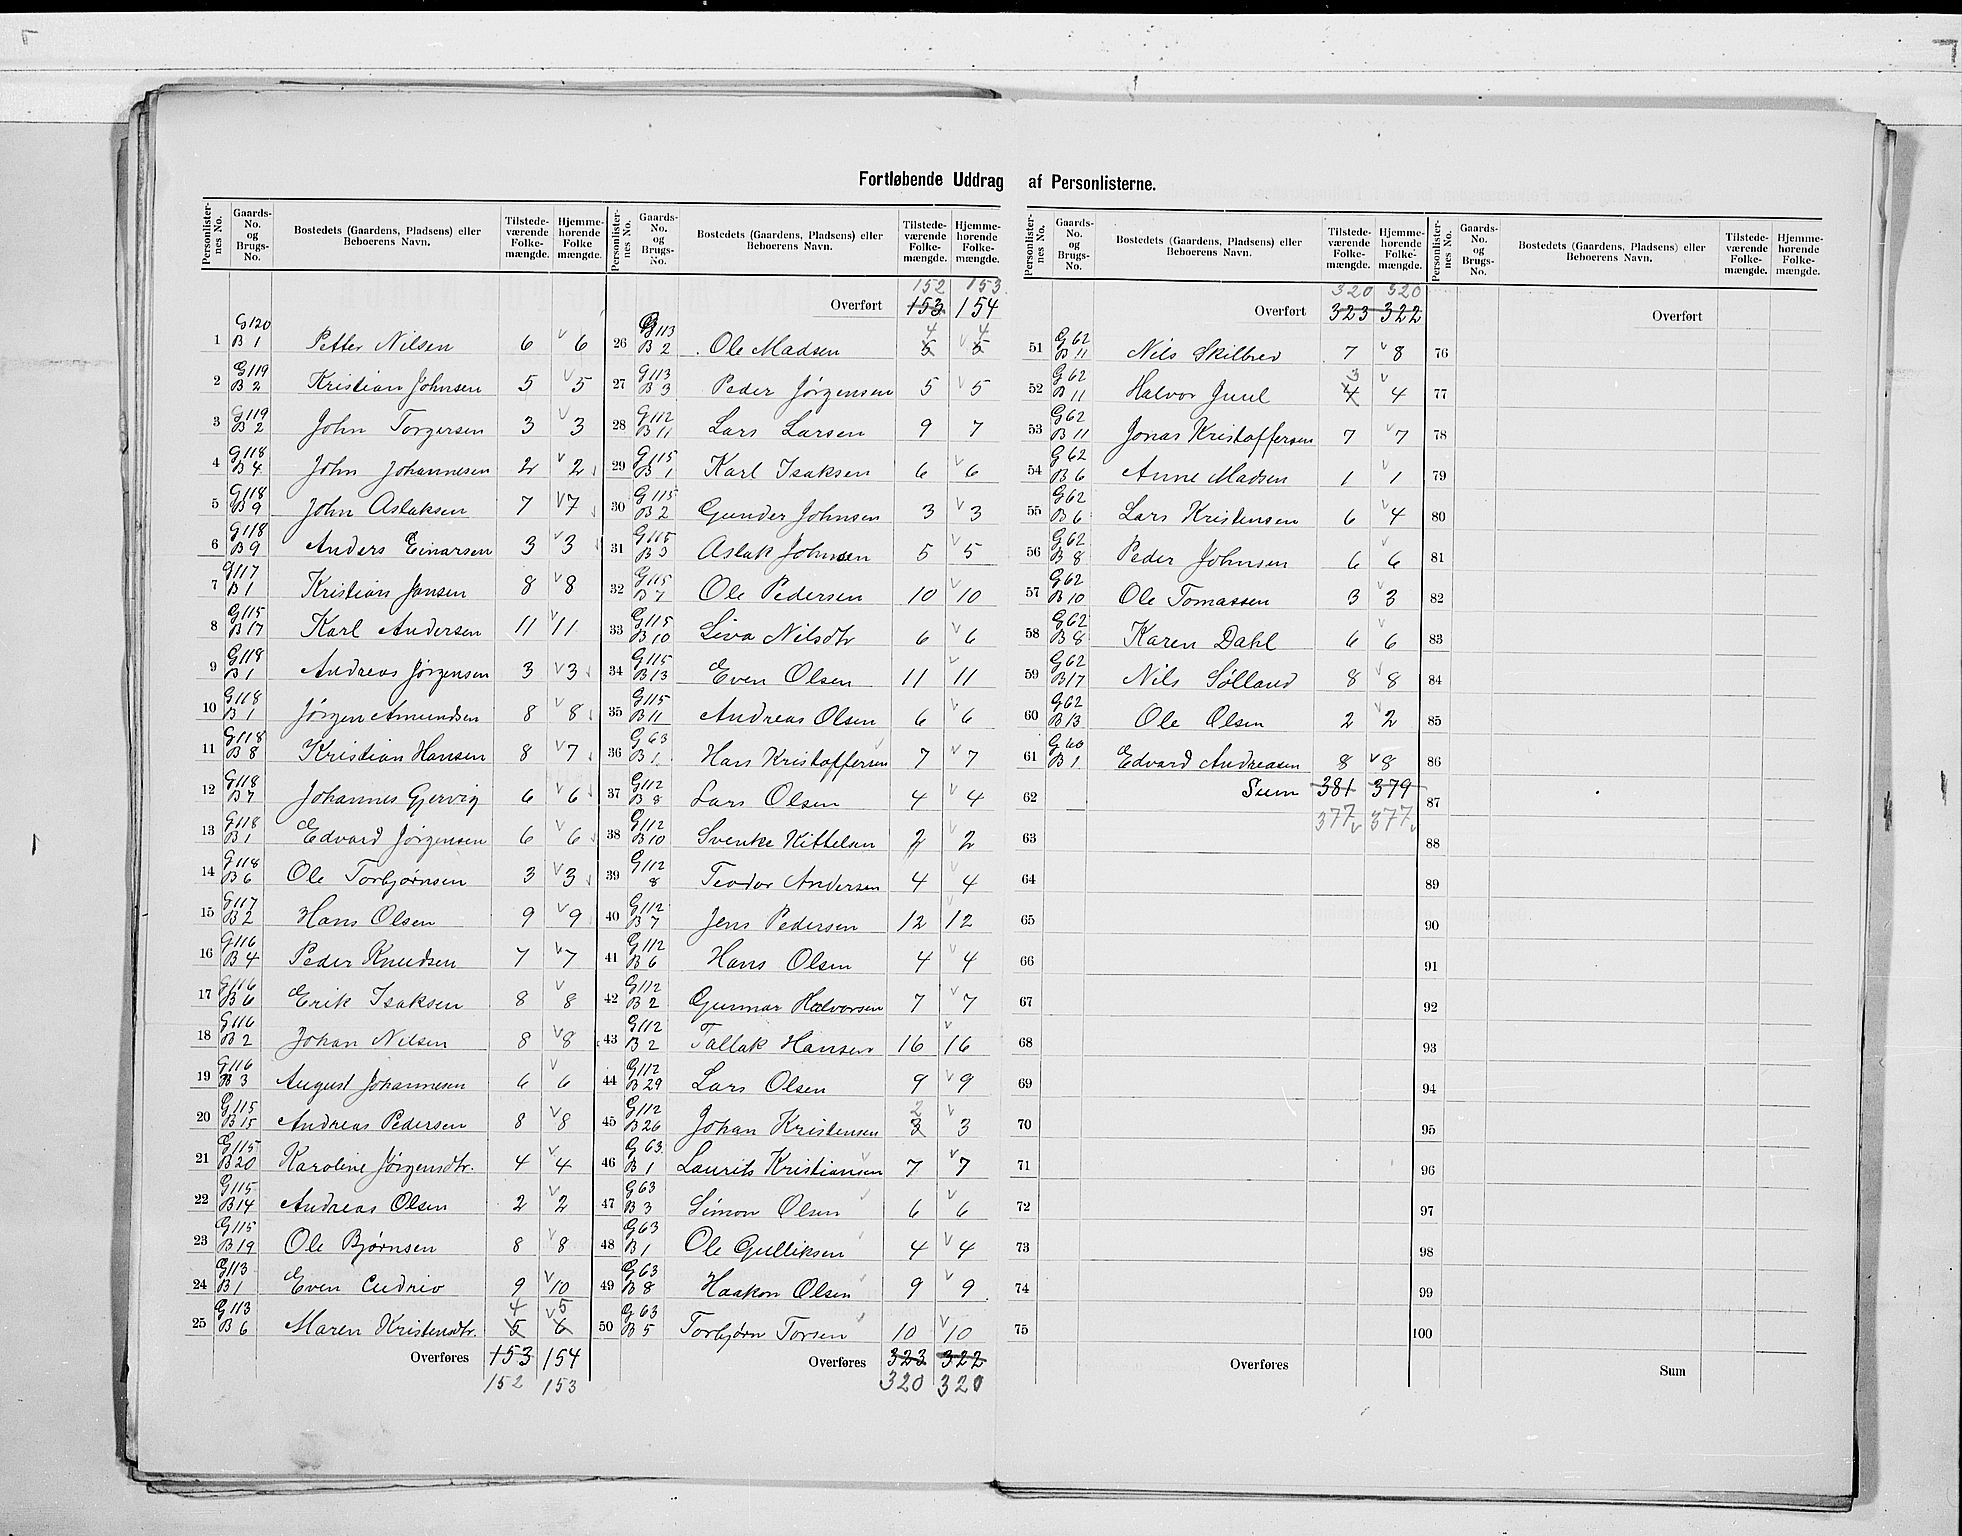 Fortløbende Uddrag af Personlisterne.
Personlister-nes No. Gaards-No. og Brugs-No. Bostedets (Gaardens, Pladsens) eller Beboerens Navn. Tilstede-værende Folke-mængde. Hjemme-hørende Folke mængde.
1 G120 B1 Petter Nilsen 6 v 6
2 G119 B2 Kristian Johnsen 5 v 5
3 G119 B2 John Torgersen 3 v 3
4 G118 B4 John Johannesen 2 v 2
5 G118 B9 John Aslaksen 7 v 7
6 G118 B9 Anders Einarsen 3 v 3
7 G117 B1 Kristian Jansen 8 v 8
8 G115 B17 Karl Andersen 11 v 11
9 G118 B1 Andreas Jørgensen 3 v 3
10 G118 B1 Jørgen Amundsen 8 v 8
11 G118 B8 Kristian Hansen 8 v 7
12 G118 B7 Johannes Gjervig 6 v 6
13 G118 B1 Edvard Jørgensen 6 v 6
14 G118 B6 Ole Torbjørnsen 3 v 3
15 G117 B2 Hans Olsen 9 v 9
16 G116 B4 Peder Knudsen 7 v 7
17 G116 B6 Erik Isaksen 8 v 8
18 G116 B2 Johan Nilsen 8 v 8
19 G116 B3 August Johannesen 6 v 6
20 G115 B15 Andreas Pedersen 8 v 8
21 G115 B20 Karoline Jørgensdtr. 4 v 4
22 G115 B14 Andreas Olsen 2 v 2
23 G115 B19 Ole Bjørnsen 8 v 8
24 G113 B1 Even 9 v 10
4 5
25 G113 B6 Maren Kristensdtr. 5 v 6
Overføres 153 154
152 153
Personlister-nes No. Gaards-No. og Brugs-No. Bostedets (Gaardens, Pladsens) eller Beboerens Navn. Tilstede-værende Folke-mængde. Hjemme-hørende Folke-mængde.
152 153
Overført 153 154
4 4
26 G113 B2 Ole Madsen 5 v 5
27 G113 B3 Peder Jørgensen 5 v 5
28 G112 B11 Lars Larsen 9 7
29 G115 B1 Karl Isaksen 6 v 6
30 G115 B2 Gunder Johnsen 3 v 3
31 G115 B3 Aslak Johnsen 5 v 5
32 G115 B7 Ole Pedersen 10 v 10
33 G115 B10 Siva Nilsdtr 6 v 6
34 G115 B13 Even Olsen 11 v 11
35 G115 B11 Andreas Olsen 6 v 6
36 G63 B1 Hans Kristoffersen 7 v 7
37 G112 B8 Lars Olsen 4 v 4
38 G112 B10 Svenke Kittelsen 2 v 2
39 G112 8 Teodor Andersen 4 v 4
40 G112 B7 Jens Pedersen 12 12
41 G112 B6 Hans Olsen 4 v 4
42 G112 B2 Gunnar Halvorsen 7 v 7
43 G112 B2 Tallak Hansen 16 v 16
44 G112 B29 Lars Olsen 9 v 9
2
45 G112 B26 Johan Kristensen 3 v 3
46 G63 B1 Laurits Kristiansen 7 v 7
47 G63 B3 Simon Olsen 6 v 6
48 G63 B1 Ole Gulliksen 4 v 4
49 G63 B8 Haakon Olsen 9 v 9
50 G63 B5 Torbjørn Torsen 10 v 10
Overføres 323 322
320 320
Personlister-nes No. Gaards-No. og Brugs-No. Bostedets (Gaardens, Pladsens) eller Beboerens Navn. Tilstede-værende Folke-mængde. Hjemme-hørende Folke-mængde.
320 320
Overført 323 322
51 G62 B11 Nils Skilbred 7 v 8
3
52 G62 B11 Halvor Juul 4 v 4
53 G62 B11 Jonas Kristoffersen 7 v 7
54 G62 B6 Anne Madsen 1 v 1
55 G62 B6 Lars Kristensen 6 v 4
56 G62 B8 Peder Johnsen 6 v 6
57 G62 B10 Ole Tomassen 3 v 3
58 G62 B8 Karen Dahl 6 v 6
59 G62 B17 Nils Sølland 8 v 8
60 G62 B13 Ole Olsen 2 v 2
61 G60 B1 Edvard Andreasen 8 v 8
62 Sum 381 379
377 v 377 v
63
64
65
66
67
68
69
70
71
72
73
74
75
Overføres
Personlister-nes No. Gaards-No. og Brugs-No. Bostedets (Gaardens, Pladsens) eller Beboerens Navn. Tilstede-værende Folke-mængde. Hjemme-hørende Folke-mængde.
Overført
76
77
78
79
80
81
82
83
84
85
86
87
88
89
90
91
92
93
94
95
96
97
98
99
100
Sum